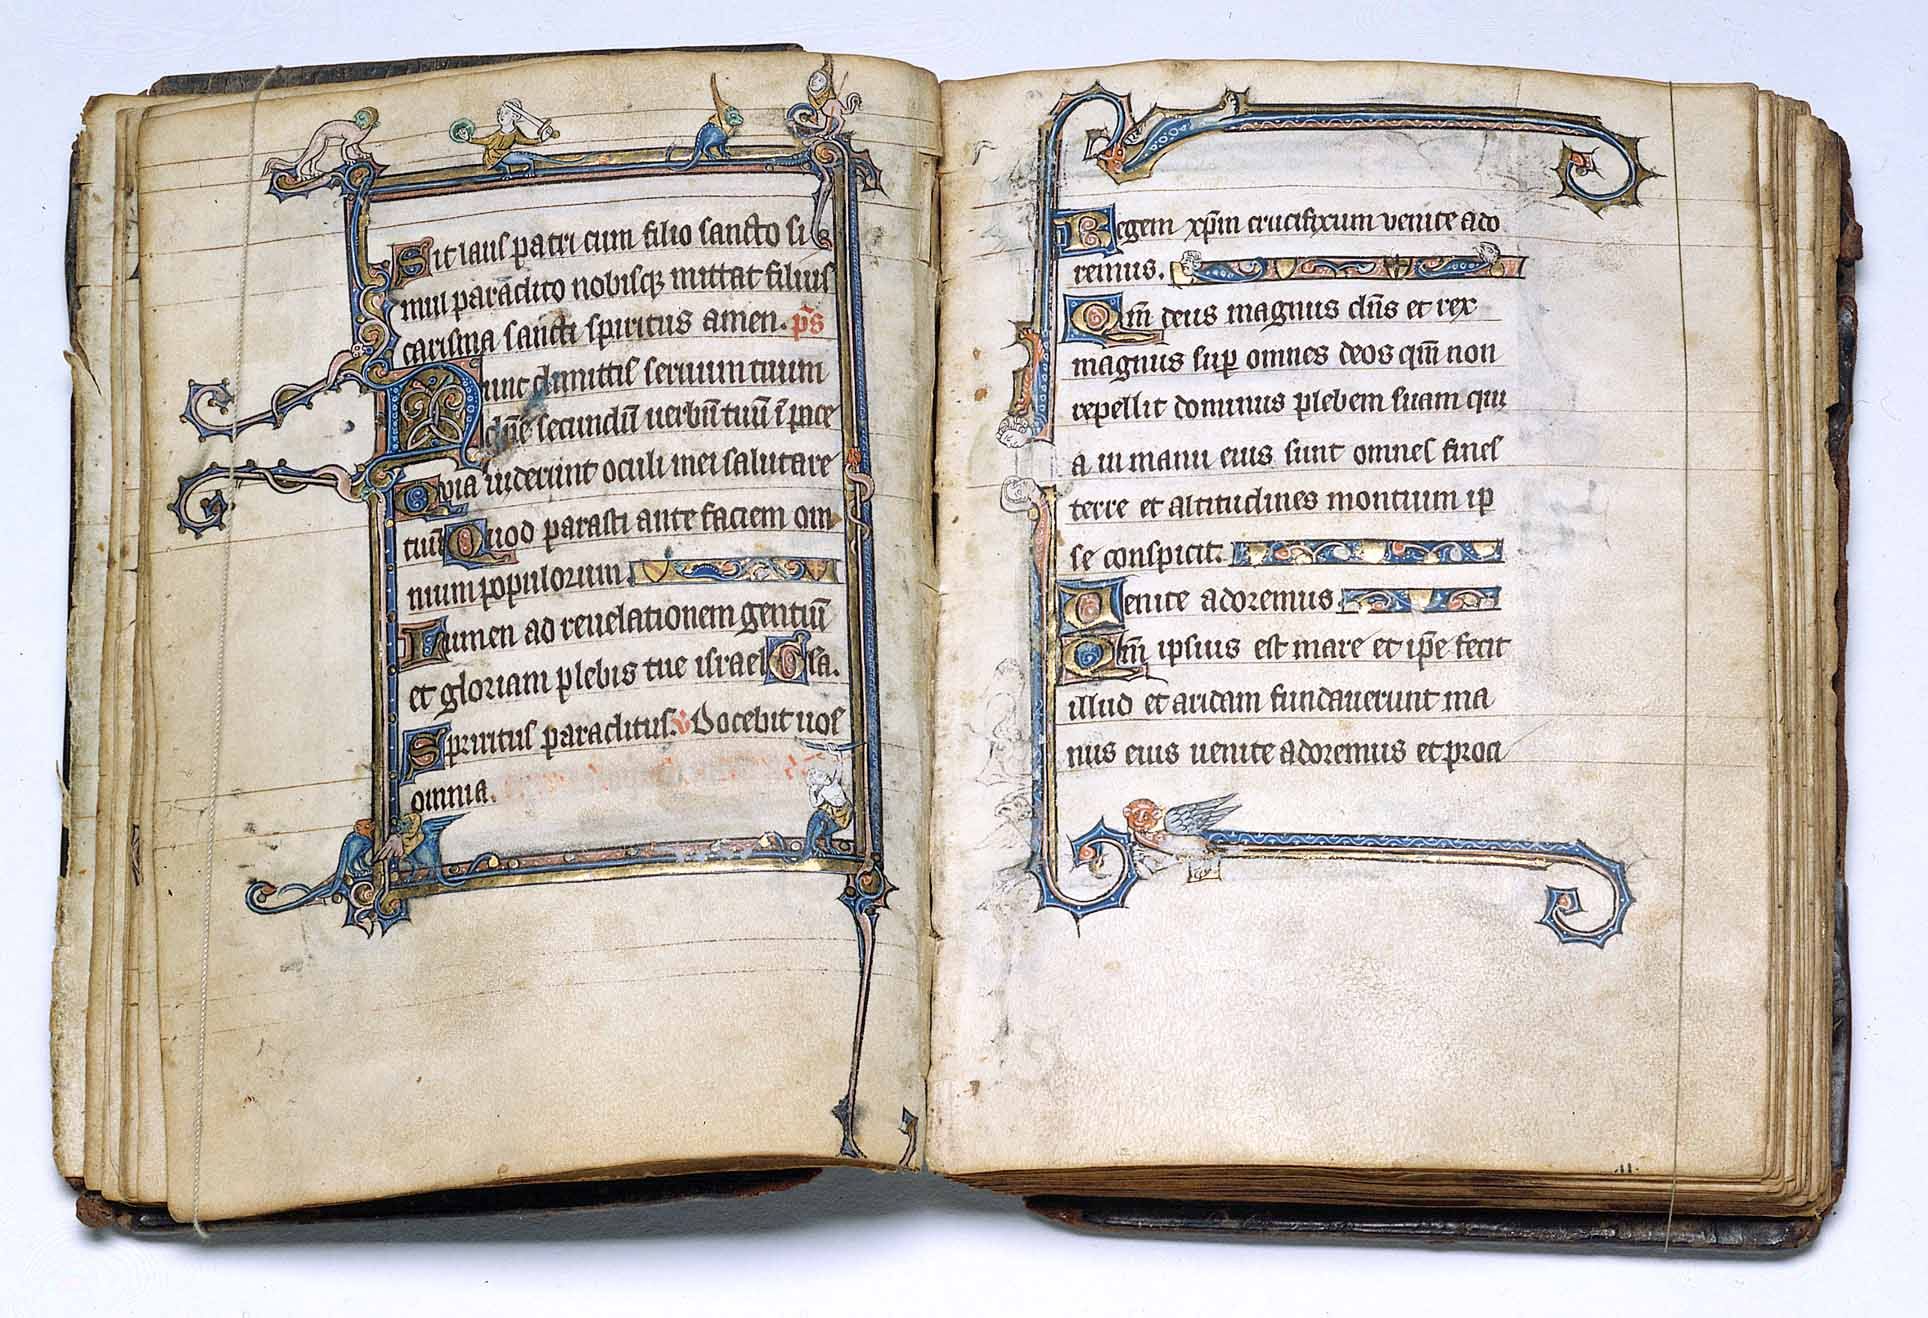 Sit laus patri cum filio sancto si
mul paraclito nobisq; mittat filius
carisma sancti spiritus amen. ps
Nunc dimittis seruum tuum
dñe secundū uerbū tuū ī pace
Quia uiderunt oculi mei salutare
tuū Quod parasti ante faciem om
nium populorum
Lumen ad reuelationem gentiū
et gloriam plebis tue israel Gła.
Spiritus paraclitus. Docebit uos
omnia.
Regem xp̄m crucifixum venite ado
remus.
Qm̄ deus magnus dn̄s et rex
magnus sup omnes deos qm̄ non
repellit dominus plebem suam qui
a in manu eius sunt omnes fines
terre et altitudines montium ip
se conspicit.
Venite adoremus.
Qm̄ ipsius est mare et ip̄e fecit
illud et aridam fundauerunt ma
nus eius uenite adoremus et proci